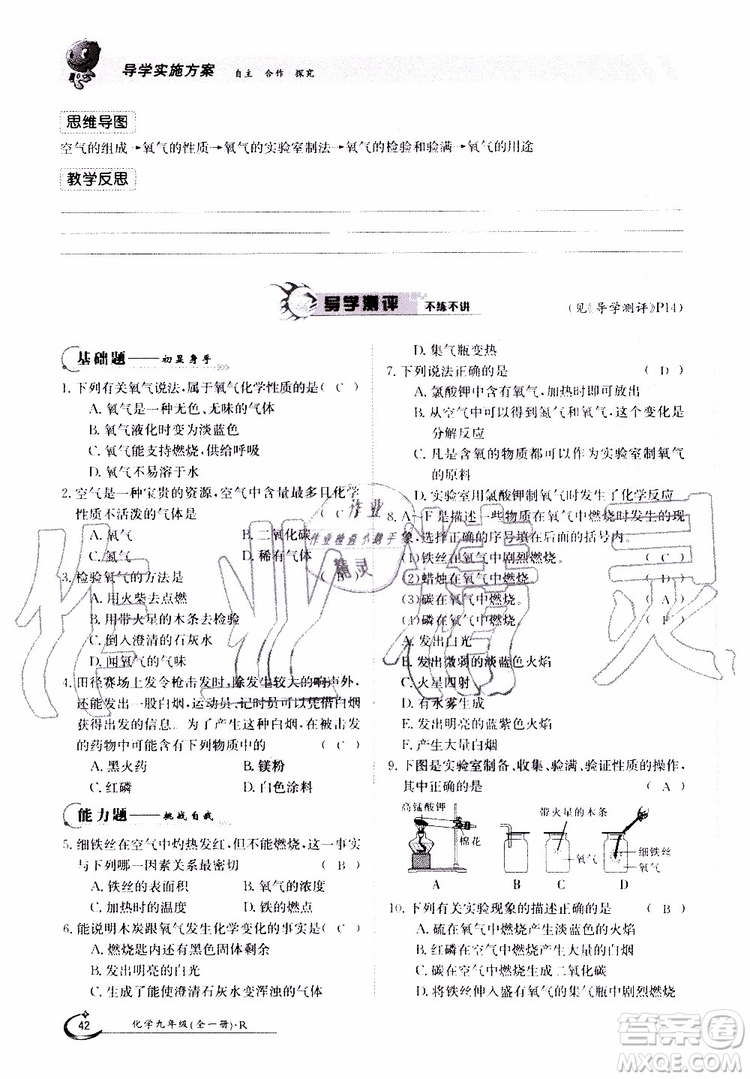 导学实施方案 自主 合作 探究
思维导图
空气的组成→氧气的性质→氧气的实验室制法→氧气的检验和验满→氧气的用途
教学反思
导学测评 不练不讲 (见《导学测评》P14)
基础题——初显身手
1. 下列有关氧气说法,属于氧气化学性质的是( C )
A. 氧气是一种无色、无味的气体
B. 氧气液化时变为淡蓝色
C. 氧气能支持燃烧,供给呼吸
D. 氧气不易溶于水
2. 空气是一种宝贵的资源,空气中含量最多且化学
性质不活泼的气体是
A. 氧气 B. 二氧化碳
C. 氮气 D. 稀有气体
3. 检验氧气的方法是
A. 用火柴去点燃
B. 用带火星的木条去检验
C. 倒入澄清的石灰水
D. 闻氧气的气味
4. 田径赛场上发令枪击发时,除产生较大的响声外,
还能产生大量的白烟。运动员、记时员可以依据白烟
获得出发的信息。为了产生这种白烟,击发
的药物中可能含有下列物质中的 ( C )
A. 黑火药 B. 镁粉
C. 红磷 D. 白色涂料
能力题——挑战自我
5. 细铁丝在空气中灼热发红,但不能燃烧,这一事实
与下列哪一因素关系最密切 ( B )
A. 铁丝的表面积 B. 氧气的浓度
C. 加热时的温度 D. 铁丝的燃点
6. 能说明木炭跟氧气发生化学变化的事实是( C )
A. 燃烧匙内还有黑色固体剩余
B. 发出明亮的黄光
C. 生成使澄清石灰水变浑浊的气体
D. 集气瓶变热
7. 下列说法正确的是 ( D )
A. 氯酸钾中含有氧气,加热时放出氧气
B. 从空气中可以得到氮气和氧气,这个变化是
分解反应
C. 凡是含氧的物质都可以作为实验室制氧气
的原料
D. 实验室用氯酸钾制氧气时发生化学反应
8. A~F是描述一些物质在氧气中燃烧时发生的现
象,选择正确的序号填在后面的括号内。
(1)铁丝在氧气中剧烈燃烧。
(2)蜡烛在氧气中燃烧。
(3)碳在氧气中燃烧。 ( A )
(4)磷在氧气中燃烧。 ( F )
A. 发出白光
B. 发出微弱的淡蓝色火焰
C. 火星四射
D. 有水雾生成
E. 发出明亮的蓝紫色火焰
F. 产生大量白烟
9. 下图是实验室制备、收集、验满、验证性质的操作,
其中正确的是 ( A )
高锰酸钾 棉花 带火星的木条 氧气 细铁丝 氧气
A B C D
10. 下列有关实验现象的描述正确的是 ( B )
A. 硫在氧气中燃烧产生淡蓝色的火焰
B. 红磷在氧气中燃烧产生大量的白烟
C. 碳在氧气中燃烧生成二氧化碳
D. 将铁丝伸入盛有氧气的集气瓶中剧烈燃烧
42 化学九年级(全一册)·R
作业精灵
作业
作业检查小助手
精灵
答案圈
MXQE.COM